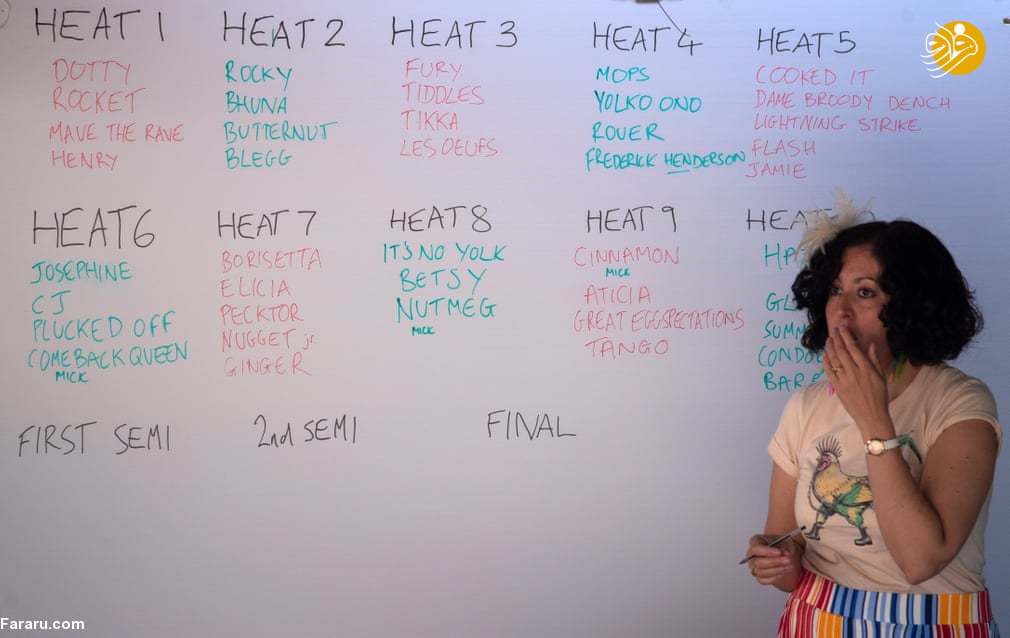 HEAT 1
DOTTY
ROCKET
MAVE THE RAVE
HENRY
HEAT 2
ROCKY
BHUNA
BUTTERNUT
BLEGG
HEAT 3
FURY
TIDDLES
TIKKA
LES OEUFS
HEAT 4
MOPS
YOLKO ONO
ROVER
FREDERICK HENDERSON
HEAT 5
COOKED IT
DAME BROODY DENCH
LIGHTNING STRIKE
FLASH
JAMIE
HEAT 6
JOSEPHINE
CJ
PLUCKED OFF
COMEBACK QUEEN
MICK
HEAT 7
BORISETTA
ELICIA
PECKTOR
NUGGET jr
GINGER
HEAT 8
IT'S NO YOLK
BETSY
NUTMEG
MICK
HEAT 9
CINNAMON
MICK
ATICIA
GREAT EGGSPECTATIONS
TANGO
HEAT
FIRST SEMI
2nd SEMI
FINAL
Fararu.com